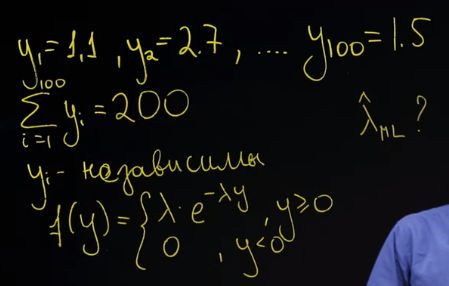 y₁=1,1, y₂=2.7, .... y₁₀₀=1.5
∑_{i=1}^{y₁₀₀} yᵢ = 200
λ̂_ML ?
yᵢ - независимы
f(y) = { λ·e^{-λy}, y≥0
0, y<0